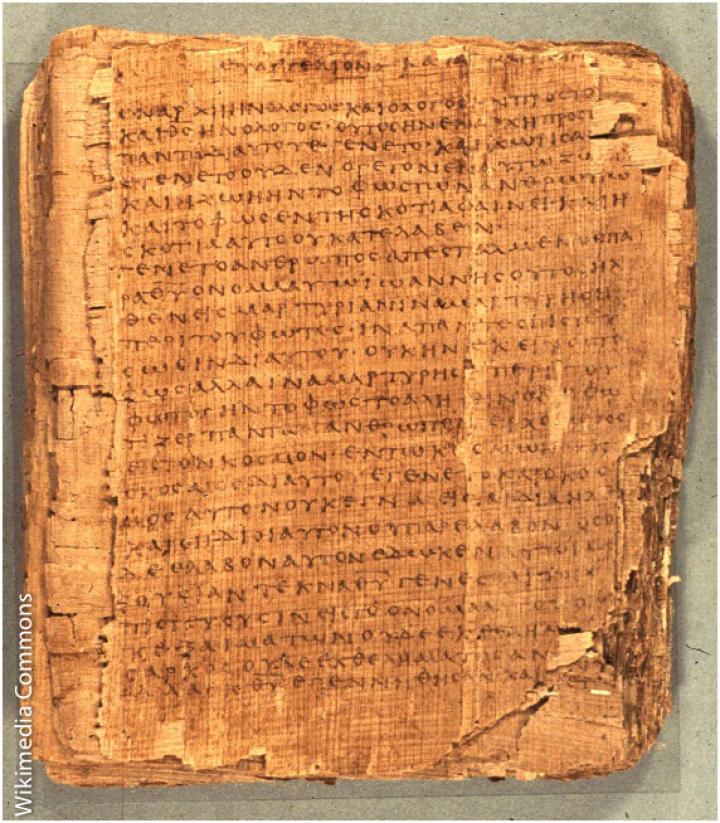 ΕΥΑΓΓΕΛΙΟΝ ΚΑΤΑ
ΕΝΑΡΧΗΗΝΟΛΟΓΟϹΚΑΙΟΛΟΓΟϹΗΝΠΡΟϹΤΟ
ΚΑΙΘϹΗΝΟΛΟΓΟϹ·ΟΥΤΟϹΗΝΕΝΑΡΧΗΠΡΟϹ
ΠΑΝΤΑΔΙΑΥΤΟΥΕΓΕΝΕΤΟ·ΚΑΙΧΩΡΙϹΑ
ΕΓΕΝΕΤΟΟΥΔΕΝΟΓΕΓΟΝΕΝΕΝΑΥΤΩΖΩ
ΚΑΙΗΖΩΗΗΝΤΟΦΩϹΤΩΝΑΝΘΡΩΠΩ
ΚΑΙΤΟΦΩϹΕΝΤΗϹΚΟΤΙΑΦΑΙΝΕΙ·ΚΑΙΗ
ϹΚΟΤΙΑΑΥΤΟΟΥΚΑΤΕΛΑΒΕΝ
ΕΓΕΝΕΤΟΑΝΘΡΩΠΟϹΑΠΕϹΤΑΛΜΕΝΟϹΠΑ
ΡΑΘΥΟΝΟΜΑΑΥΤΩΙΩΑΝΝΗϹΟΥΤΟϹΗΛ
ΘΕΝΕΙϹΜΑΡΤΥΡΙΑΝΙΝΑΜΑΡΤΥΡΗϹΗ
ΠΕΡΙΤΟΥΦΩΤΟϹ·ΙΝΑΠΑΝΤΕϹΠΙϹΤΕΥ
ϹΩϹΙΝΔΙΑΥΤΟΥ·ΟΥΚΗΝΕΚΕΙΝΟϹΤΟ
ΦΩϹΑΛΛΑΙΝΑΜΑΡΤΥΡΗϹΗΠΕΡΙΤΟΥ
ΦΩΤΟϹΗΝΤΟΦΩϹΤΟΑΛΗΘΙΝΟΝΟΦΩ
ΤΙΖΕΙΠΑΝΤΑΑΝΘΡΩΠΟΝΕΡΧΟΜΕΝΟΝ
ΕΙϹΤΟΝΚΟϹΜΟΝ·ΕΝΤΩΚΟϹΜΩΗΝ
ΚΟϹΜΟϹΔΙΑΥΤΟΥΕΓΕΝΕΤΟΚΑΙΟΚΟϹ
ΜΟϹΑΥΤΟΝΟΥΚΕΓΝΩΕΙϹΤΑΙΔΙΑΗΛ
ΚΑΙΟΙΙΔΙΟΙΑΥΤΟΝΟΥΠΑΡΕΛΑΒΟΝΟϹΟ
ΔΕΕΛΑΒΟΝΑΥΤΟΝΕΔΩΚΕΝΑΥΤΟΙϹ
ΞΟΥϹΙΑΝΤΕΚΝΑΘΥΓΕΝΕϹΘΑΙΤΟΙϹ
ΠΙϹΤΕΥΟΥϹΙΝΕΙϹΤΟΟΝΟΜΑΑΥΤΟΥ
ΕΞΑΙΜΑΤΩΝΟΥΔΕΕΚΘΕΛΗΜΑ
ϹΑΡΚΟϹΟΥΔΕΕΚΘΕΛΗΜΑΤΟϹΑΝ
ΑΛΛΑΕΚΘΥΕΓΕΝΝΗΘΗϹΑΝΚΑΙ
Wikimedia Commons